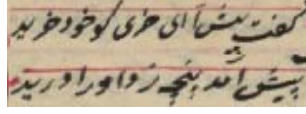 گفت پیش آی ای خری کو خود خرید
پیش آمد پنجه زد او را درید